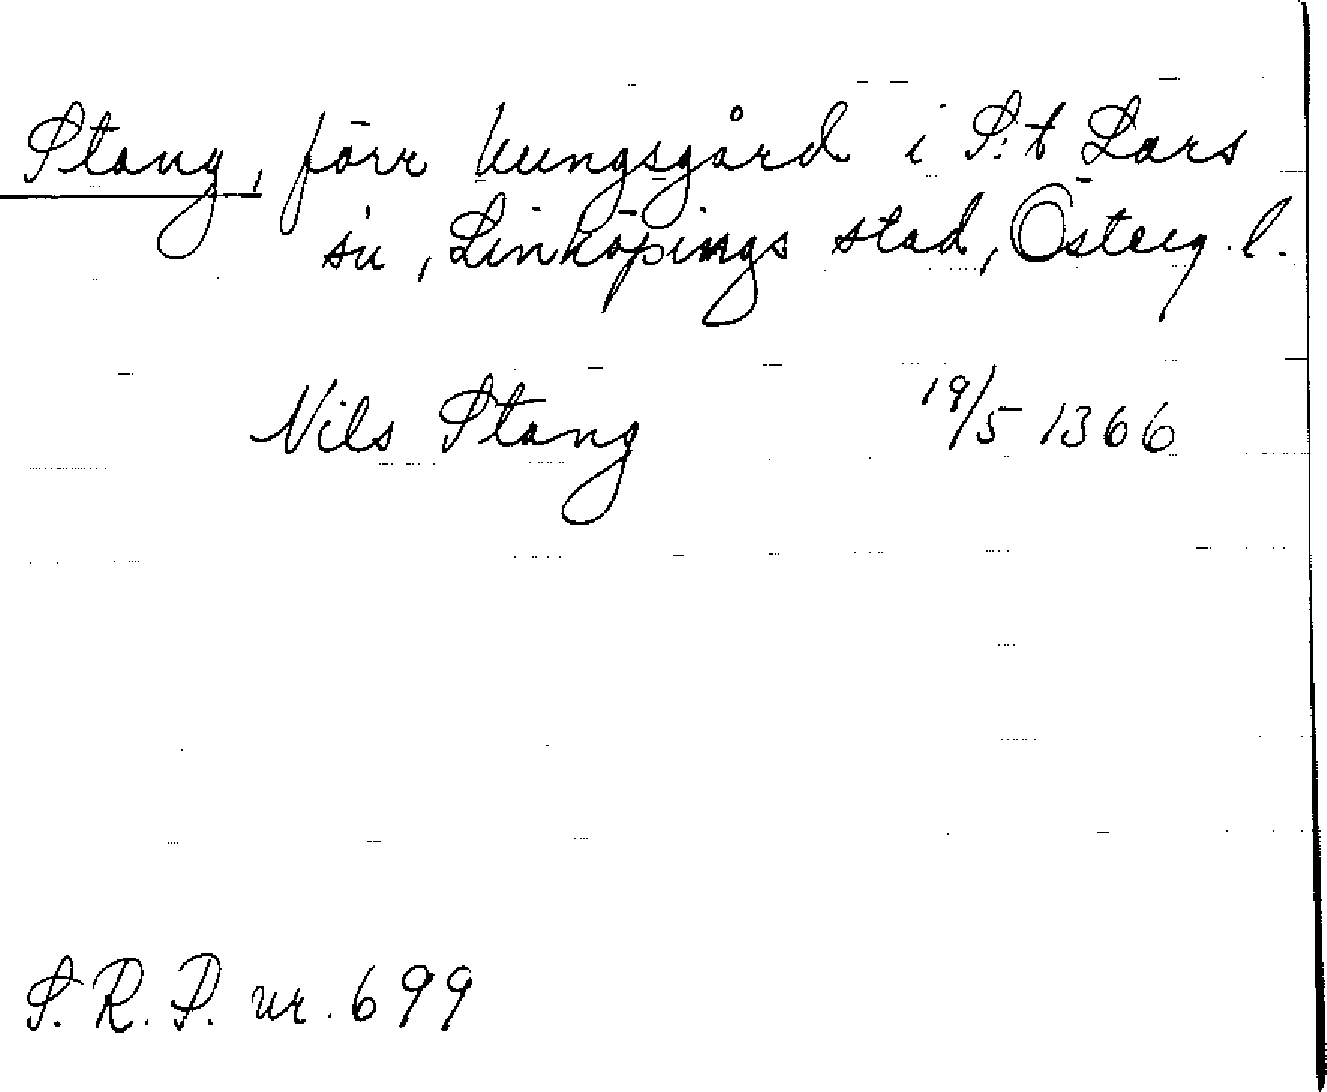 Stang, förr kungsgård i S:t Lars
sn, Linköpings stad, Österg. l.
Nils Stang 19/5 1366
S. R. P. nr. 699